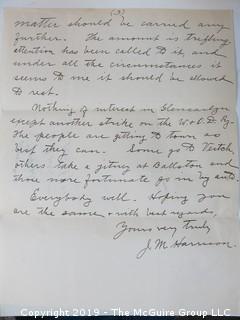 (3)
matter should be carried any
further. The amount is trifling
attention has been called to it, and
under all the circumstances it
seems to me it should be allowed
to rest.
Nothing of interest in Glencarlyn
except another strike on the W. & O. D. Ry.
The people are getting to town as
best they can. Some go to Veitch,
others take a jitney at Ballston and
those more fortunate go in by auto.
Everybody well. Hoping you
are the same & with best regards,
Yours very truly
J. M. Harrison.
Copyright 2019 - The McGuire Group LLC